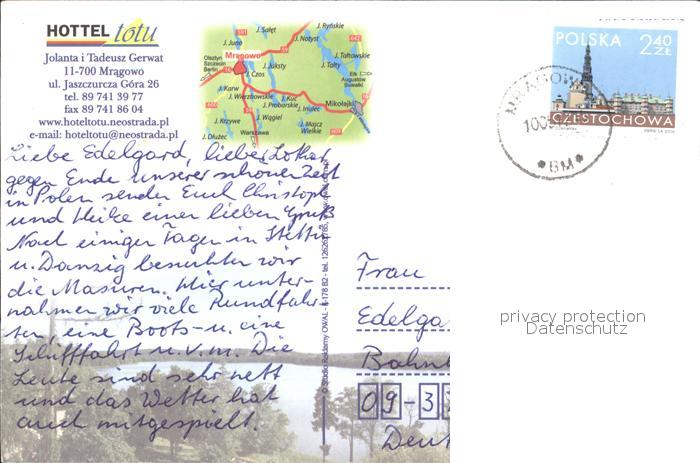 HOTTEL totu
Jolanta i Tadeusz Gerwat
11-700 Mrągowo
ul. Jaszczurcza Góra 26
tel. 89 741 39 77
fax 89 741 86 04
www.hoteltotu@neostrada.pl
e-mail: hoteltotu@neostrada.pl
J. Sałęt
J. Ryńskie
J. Juno
J. Notyst
Mrągowo
J. Tałtowskie
Olsztyn
Szczecin
Berlin
16
J. Juksty
J. Tałty
J. Czos
Ełk
Augustów
Suwałki
J. Karw
J. Wierzbowskie
J. Kuc
J. Probarskie
J. Inulec
Mikołajki
J. Wągiel
J. Krzywe
J. Majcz
Wielkie
J. Dłużec
Warszawa
POLSKA 2,40 ZŁ
CZĘSTOCHOWA
MRĄGOWO
BM
Liebe Edelgard, lieber Lothar
gegen Ende unserer schönen Zeit
in Polen senden Euch Christoph
und Heike einen lieben Gruß
Nach einigen Tagen in Stettin
u. Danzig besuchten wir
die Masuren. Hier unter-
nahmen wir viele Rundfahr-
ten, eine Boots- u. eine
Schifffahrt u.v.m. Die
Leute sind sehr nett
und das Wetter hat
auch mitgespielt.
© Studio Reklamy OWAL
Frau
Edelga
Bahn
09-3
Deut
privacy protection
Datenschutz